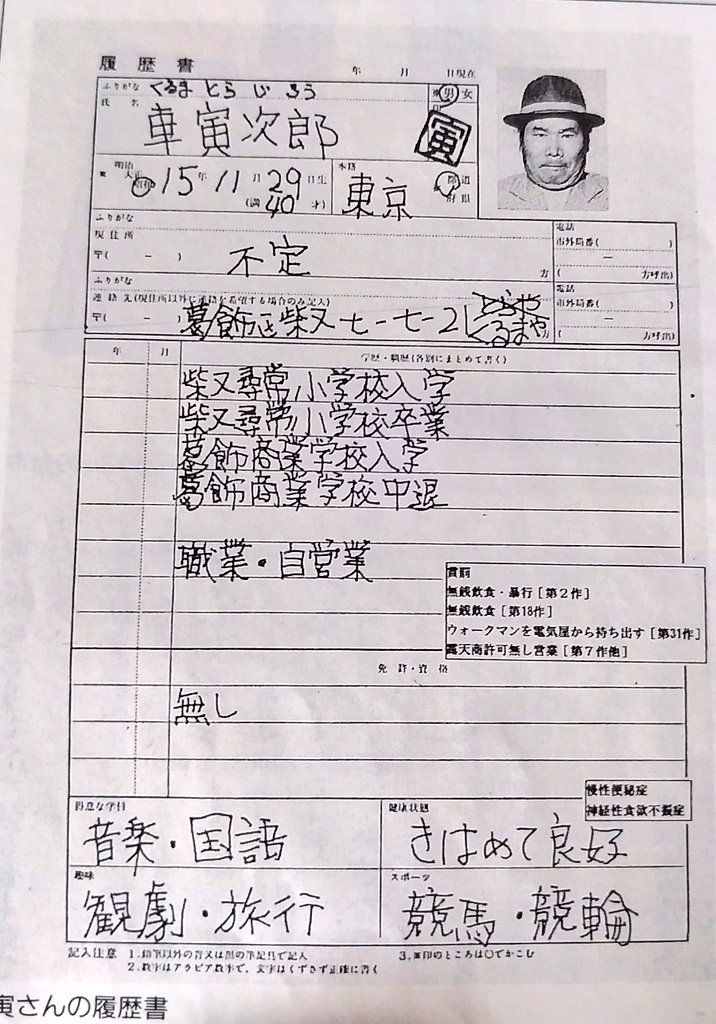 履歴書
年 月 日現在
ふりがな くるま とら じ ろう
氏名 車寅次郎
男 女
寅
明治 大正 昭和 15年11月29日生 (満40才)
本籍 東京 都道府県
ふりがな
現住所
〒( − ) 不定 方
電話
市外局番( )
−
( 方呼出)
ふりがな
連絡先(現住所以外に連絡を希望する場合のみ記入)
〒( − ) 葛飾区柴又七−七−2 とらや くるまや 方
電話
市外局番( )
−
( 方呼出)
年 月 学歴・職歴(各別にまとめて書く)
柴又尋常小学校入学
柴又尋常小学校卒業
葛飾商業学校入学
葛飾商業学校中退
職業・自営業
賞罰
無銭飲食・暴行[第2作]
無銭飲食[第18作]
ウォークマンを電気屋から持ち出す[第31作]
露天商許可無し営業[第7作他]
免許・資格
無し
慢性便秘症
神経性食欲不振症
得意な学科
音楽・国語
健康状態
きはめて良好
趣味
観劇・旅行
スポーツ
競馬・競輪
記入注意 1.鉛筆以外の青又は黒の筆記具で記入 3.※印のところは○でかこむ
2.数字はアラビア数字で、文字はくずさず正確に書く
寅さんの履歴書